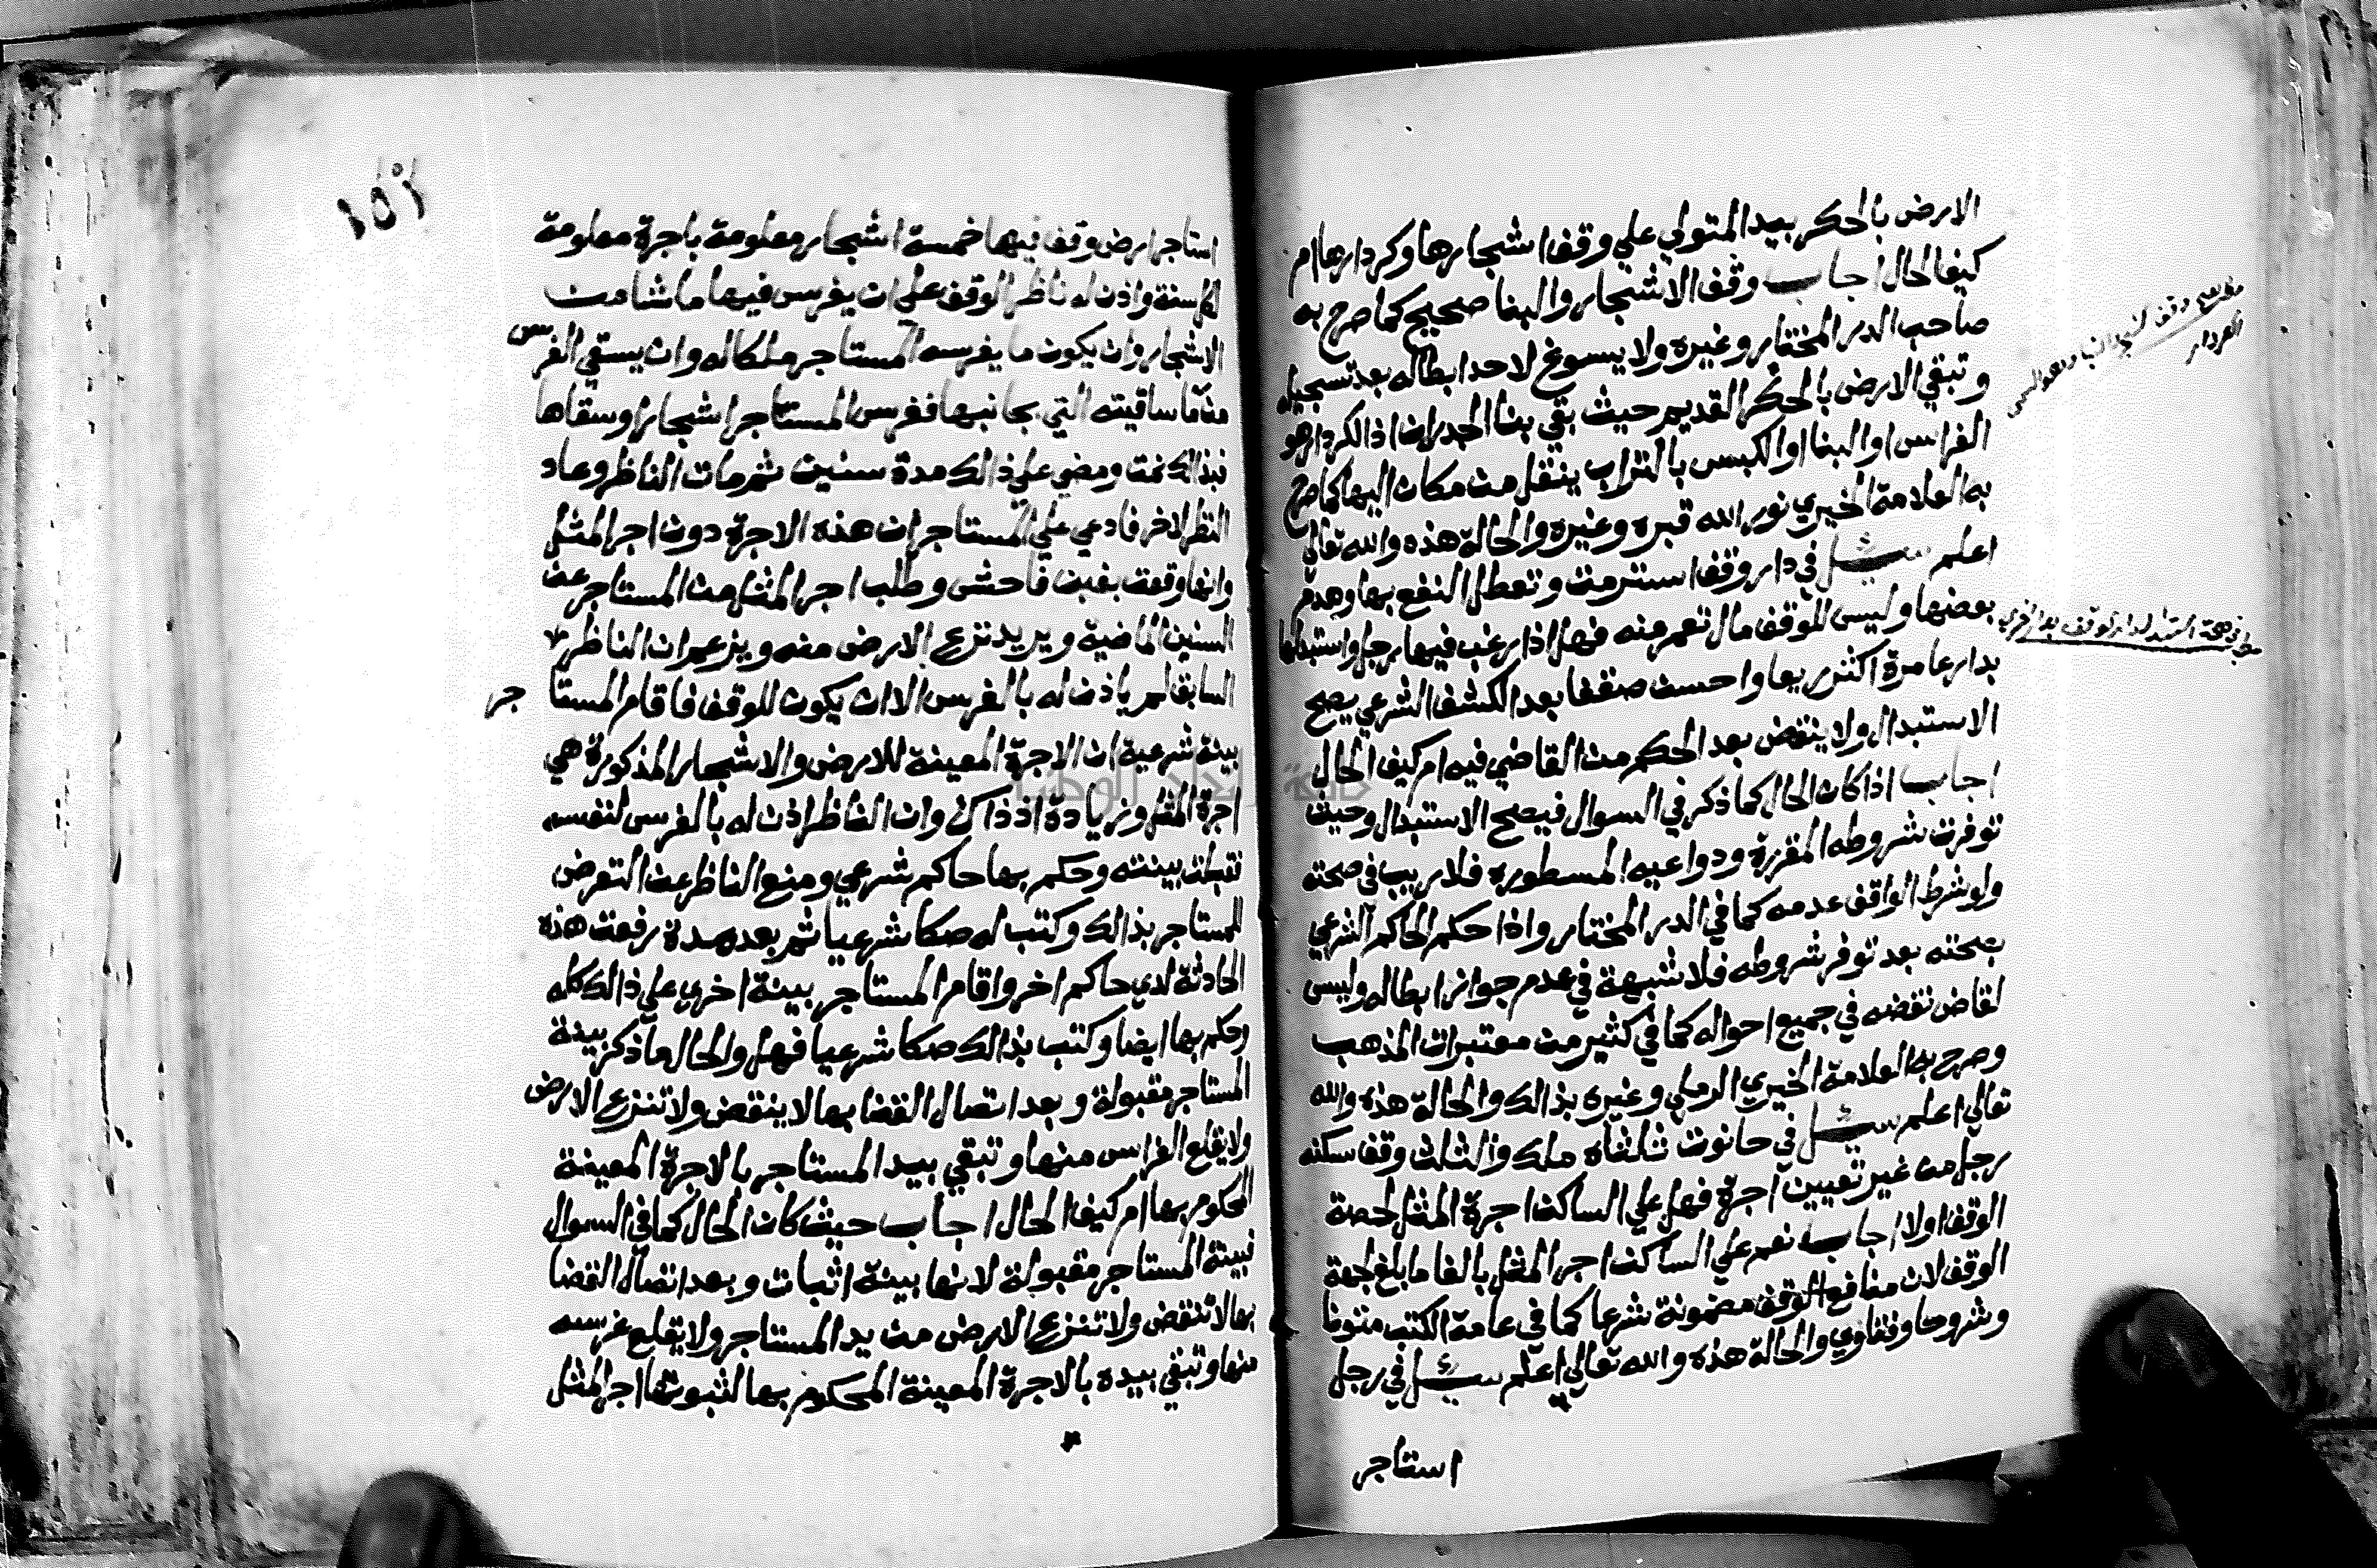 الارض بالحكر بيد المتولي علي وقف اشجارها وكردارها ام
كيف الحال اجاب وقف الاشجار والبنا صحيح كما صرح به
صاحب الدر المختار وغيره ولا يسوغ لاحد ابطاله بعد تسجيله
وتبقي الارض بالحكر القديم حيث بقي بنا الجدران اذ الكردار هو
الغراس او البنا او الكبس بالتراب ينقل من مكان اليها كما صرح
به العلامة الخيري نور الله قبره وغيره والحالة هذه والله تعالي
اعلم سئل في دار وقف استرمت وتعطل النفع بها وهدم
بعضها وليس للوقف مال تعمر منه فهل اذا رغب فيها رجل واستبدلها
بدار عامرة اكثر ريعا واحسن صقفا بعد الكشف الشرعي يصح
الاستبدال ولا ينقض بعد الحكم من القاضي فيه ام كيف الحال
اجاب اذا كان الحال كما ذكر في السوال فيصح الاستبدال وحيث
توفرت شروطه المقررة ودواعيه المسطوره فلا ريب في صحته
ولو شرط الواقف عدمه كما في الدر المختار واذا حكم الحاكم الشرعي
بصحته بعد توفر شروطه فلا شبهة في عدم جواز ابطاله وليس
لقاض نقضه في جميع احواله كما في كثير من معتبرات المذهب
وصرح به العلامة الخيري الرملي وغيره بذالك والحالة هذه والله
تعالي اعلم سئل في حانوت ثلثاه ملك والثلث وقف سكنه
رجل من غير تعيين اجرة فهل علي الساكن اجرة المثل لحصة
الوقف اولا اجاب نعم علي الساكن اجر المثل بالغا ما بلغ لجهة
الوقف لان منافع الوقف مضمونة شرعا كما في عامة الكتب متونا
وشروحا وفتاوي والحالة هذه والله تعالي اعلم سئل في رجل
استاجر
وقف
الكردار
في صحة استبدال دار الوقف بدار اخري
١٥٩
استاجر ارض وقف فيها خمسة اشجار معلومة باجرة معلومة
كل سنة واذن له ناظر الوقف علي ان يغرس فيها ما شا من
الاشجار وان يكون ما يغرسه المستاجر ملكا له وان يستقي الغرس
من ما ساقيته التي بجانبها فغرس المستاجر اشجارا وسقاها
فبذالك نمت ومضي علي ذالك مدة سنين ثم مات الناظر وعاد
النظر لاخر فادعي علي المستاجر ان هذه الاجرة دون اجر المثل
وانها وقعت بغبن فاحش وطلب اجر المثل من المستاجر عن
السنين الماضية ويريد نزع الارض منه ويزعم ان الناظر
السابق لم ياذن له بالغرس الا ان يكون للوقف فاقام المستاجر
بينة شرعية ان الاجرة المعينة للارض والاشجار المذكورة هي
اجرة المثل وزيادة اذ ذاك وان الناظر اذن له بالغرس لنفسه
فقبلت بينته وحكم بها حاكم شرعي ومنع الناظر عن التعرض
للمستاجر بذالك وكتب له صكا شرعيا ثم بعد مدة رفعت هذه
الحادثة لدي حاكم اخر واقام المستاجر بينة اخري علي ذالك كله
وحكم بها ايضا وكتب بذالك صكا شرعيا فهل والحال ما ذكر بينة
المستاجر مقبولة وبعد اتصال القضا بها لا ينقض ولا تنزع الارض
ولا يقلع الغراس منها وتبقي بيد المستاجر بالاجرة المعينة
المحكوم بها ام كيف الحال اجاب حيث كان الحال كما في السوال
فبينة المستاجر مقبولة لانها بينة اثبات وبعد اتصال القضا
بها لا تنقض ولا تنزع الارض من يد المستاجر ولا يقلع غرسه
منها وتبقي بيده بالاجرة المعينة المحكوم بها لثبوتها اجر المثل